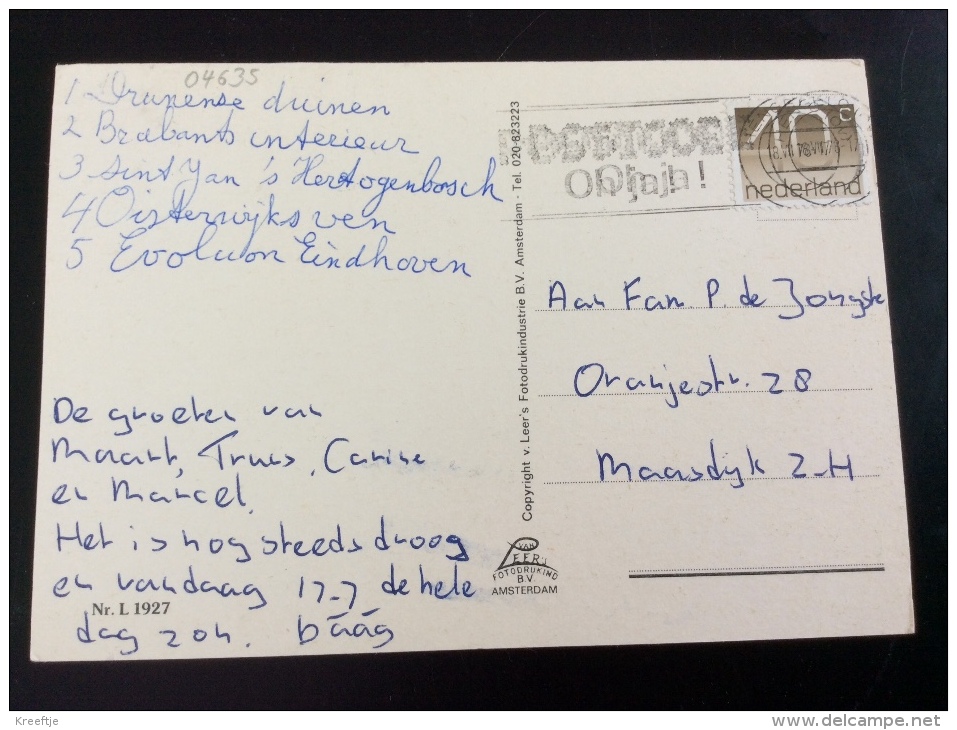 04635
1 Drunense duinen
2 Brabants interieur
3 Sint Jan 's Hertogenbosch
4 Oisterwijks ven
5 Evoluon Eindhoven
De groeten van
Maart, Truus, Carine
en Marcel.
Het is nog steeds droog
en vandaag 17-7 de hele
dag zon. bááág
Nr. L 1927
Copyright v. Leer's Fotodrukindustrie B.V. Amsterdam - Tel. 020-823223
VAN
LEER'S
FOTODRUKIND
B.V.
AMSTERDAM
POSTCODE
Oh ja!
10c
nederland
Aan Fam P. de Jongste
Oranjestr. 28
Maasdijk Z-H
Kreeftje
www.delcampe.net